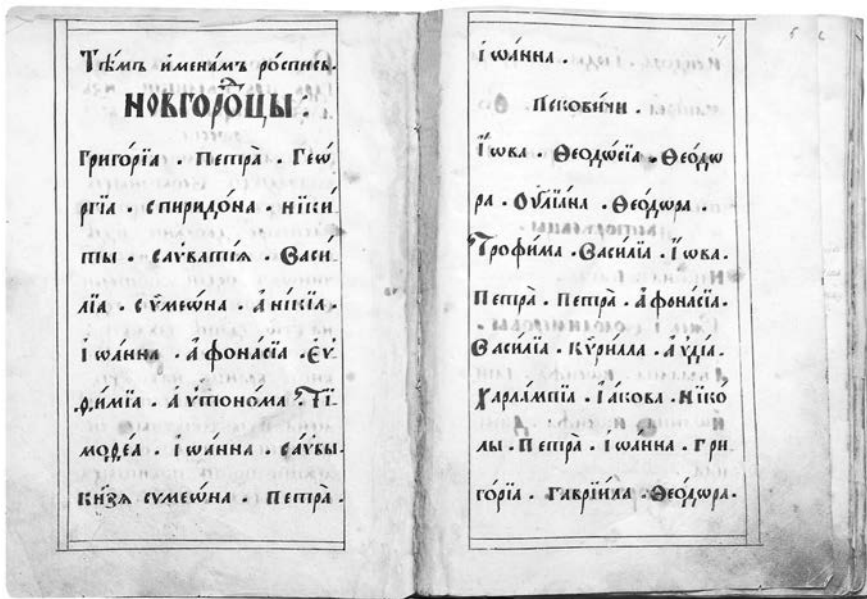 Тѣ́мъ и҆менáмъ рóспись.
НОВГОРО́ДЦЫ.
Григо́рїа . Петрà . Геѡ́
ргїа . спиридо́на . ники
ты . саѵватїя . Васи́
лїа . сѷмеѡ́на . а҆нікїа .
і҆ѡáнна . А҆фонáсїа . Еѵ
ѳи́мїа . а҆ѵтоно́ма . Ті
моѳе́а . і҆ѡáнна саѵвы .
кн҃зя сѵмеѡ́на . Петрà .
І҆ѡáнна .
Пековичи .
І҆ѡва . Ѳеодѡ́сїа . Ѳео́дѡ
ра . Оу҆лїáна . Ѳео́дѡра .
Трофи́ма . Васи́лїа . І҆ѡва .
Петрà . Петрà . А҆фонáсїа .
Васи́лїа . Кѷри́лла . А҆ѵ́дїа .
Харлáмпїа . І҆áкова . Нико́
лы . Петрà . І҆ѡáнна . Гри
го́рїа . Гаврїи́ла . Ѳео́дѡра .